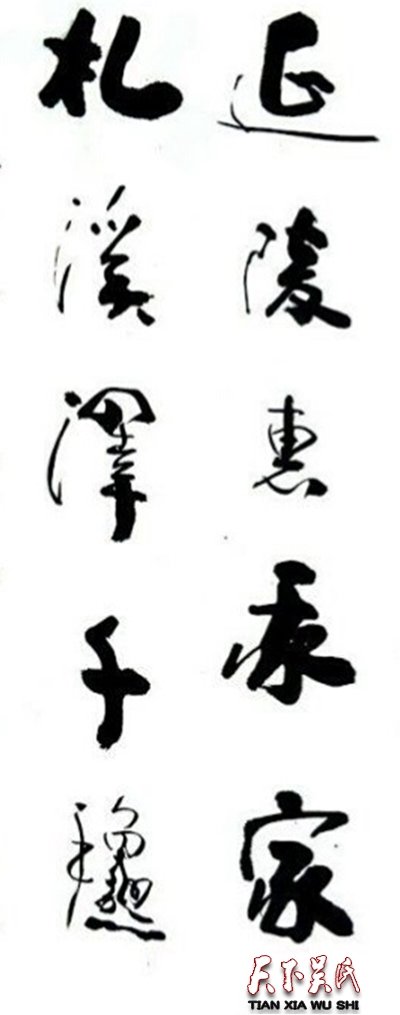 延陵惠承家
札溪澤千龝
天下吴氏
TIAN XIA WU SHI